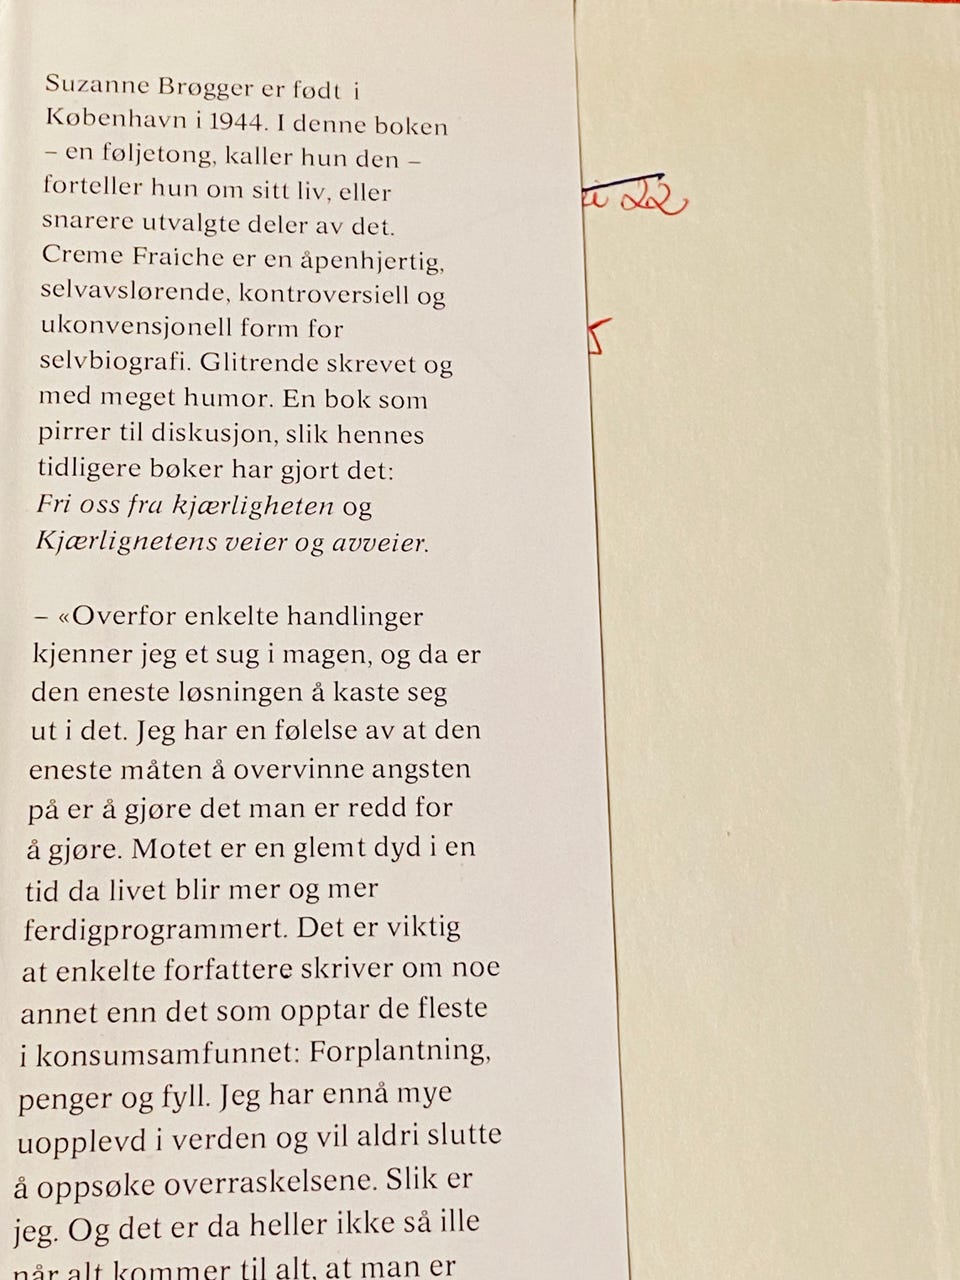 Suzanne Brøgger er født i
København i 1944. I denne boken
– en føljetong, kaller hun den –
forteller hun om sitt liv, eller
snarere utvalgte deler av det.
Creme Fraiche er en åpenhjertig,
selvavslørende, kontroversiell og
ukonvensjonell form for
selvbiografi. Glitrende skrevet og
med meget humor. En bok som
pirrer til diskusjon, slik hennes
tidligere bøker har gjort det:
Fri oss fra kjærligheten og
Kjærlignetens veier og avveier.
– «Overfor enkelte handlinger
kjenner jeg et sug i magen, og da er
den eneste løsningen å kaste seg
ut i det. Jeg har en følelse av at den
eneste måten å overvinne angsten
på er å gjøre det man er redd for
å gjøre. Motet er en glemt dyd i en
tid da livet blir mer og mer
ferdigprogrammert. Det er viktig
at enkelte forfattere skriver om noe
annet enn det som opptar de fleste
i konsumsamfunnet: Forplantning,
penger og fyll. Jeg har ennå mye
uopplevd i verden og vil aldri slutte
å oppsøke overraskelsene. Slik er
jeg. Og det er da heller ikke så ille
når alt kommer til alt, at man er
22
5